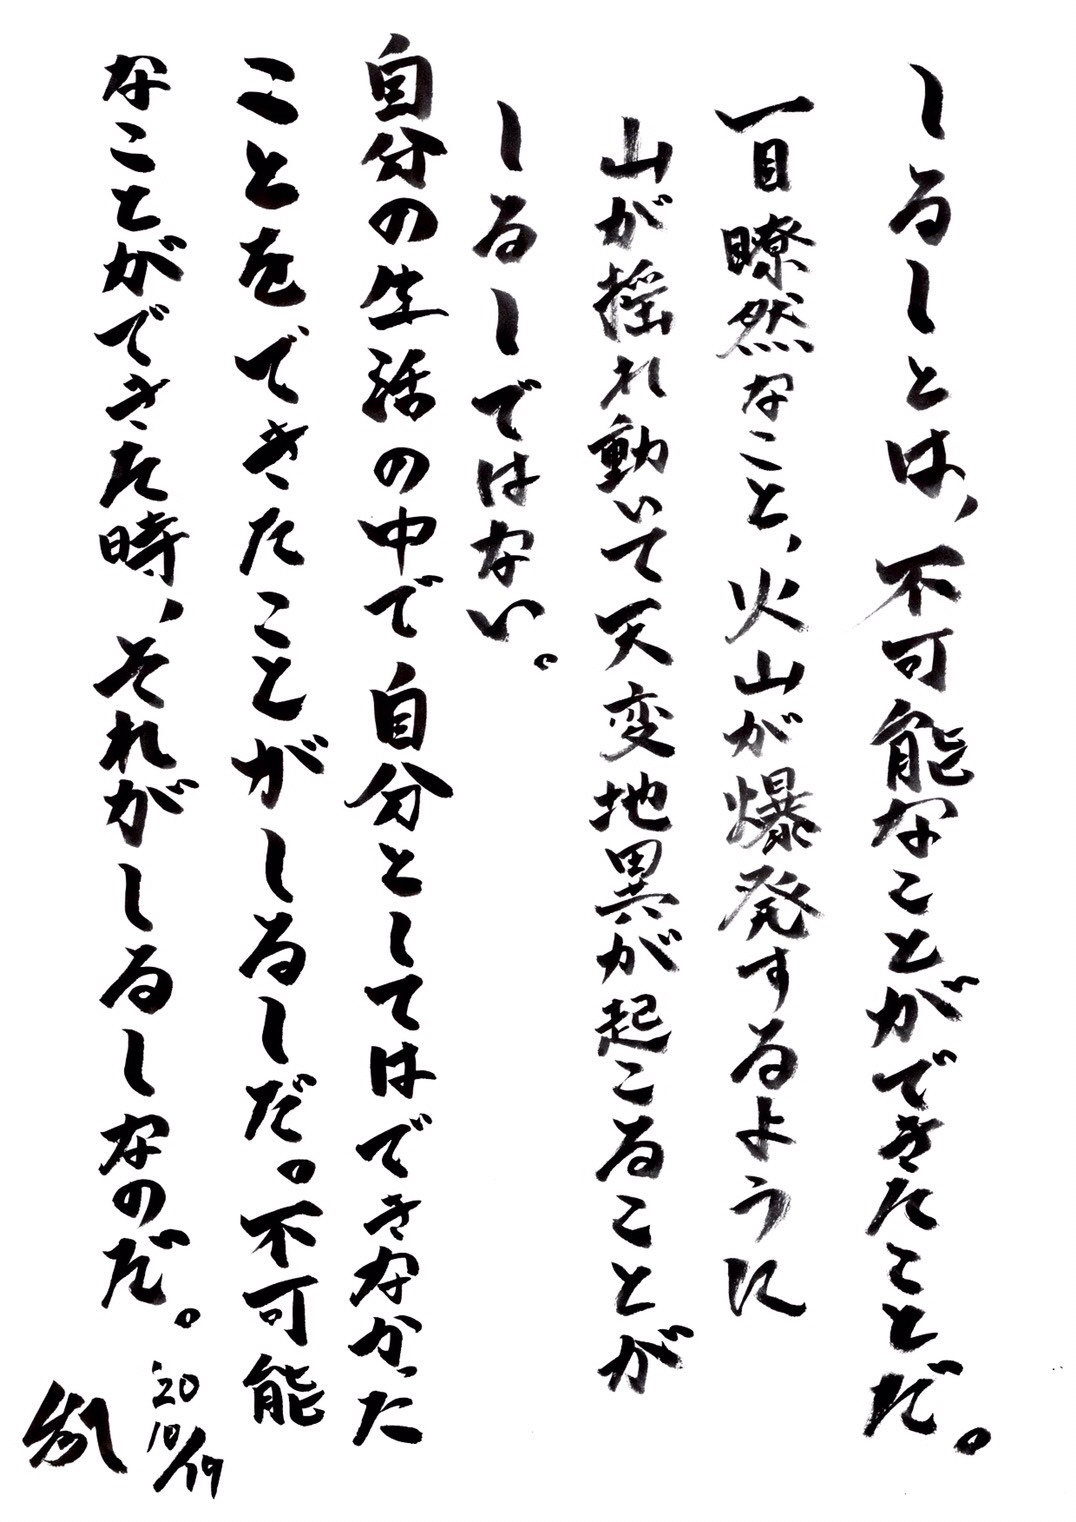 しるしとは、不可能なことができたことだ。
一目瞭然なこと、火山が爆発するように
山が揺れ動いて天変地異が起こることが
しるしではない。
自分の生活の中で自分としてはできなかった
ことをできたことがしるしだ。不可能
なことができた時、それがしるしなのだ。
'20
10/19